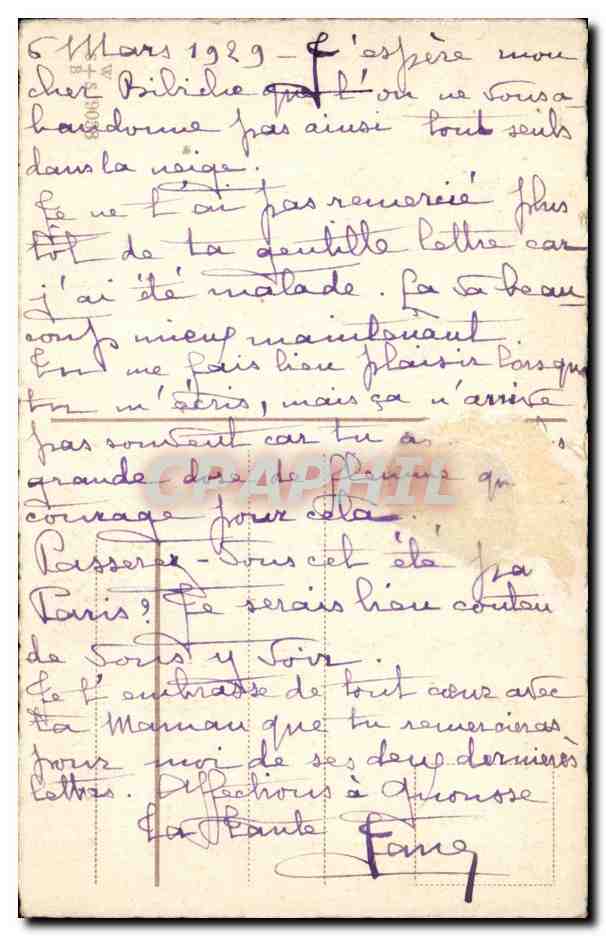 6 Mars 1929 - J'espère mon
cher Bibiche que l'on ne vous a
bandonne pas ainsi tout seuls
dans la neige.
Je ne t'ai pas remercié plus
tôt de ta gentille lettre car
j'ai été malade. Ça va beau
coup mieux maintenant
Tu me fais bien plaisir lorsque
tu m'écris, mais ça n'arrive
pas souvent car tu as
grande dose de flemme qu
courage pour cela.
Passerez-vous cet été pa
Paris? Je serais bien conten
de vous y voir.
Je t'embrasse de tout cœur avec
ta Maman que tu remercieras
pour moi de ses deux dernières
lettres. Affections à
Ta Tante
W
S+S 9053
B
CPAPHIL